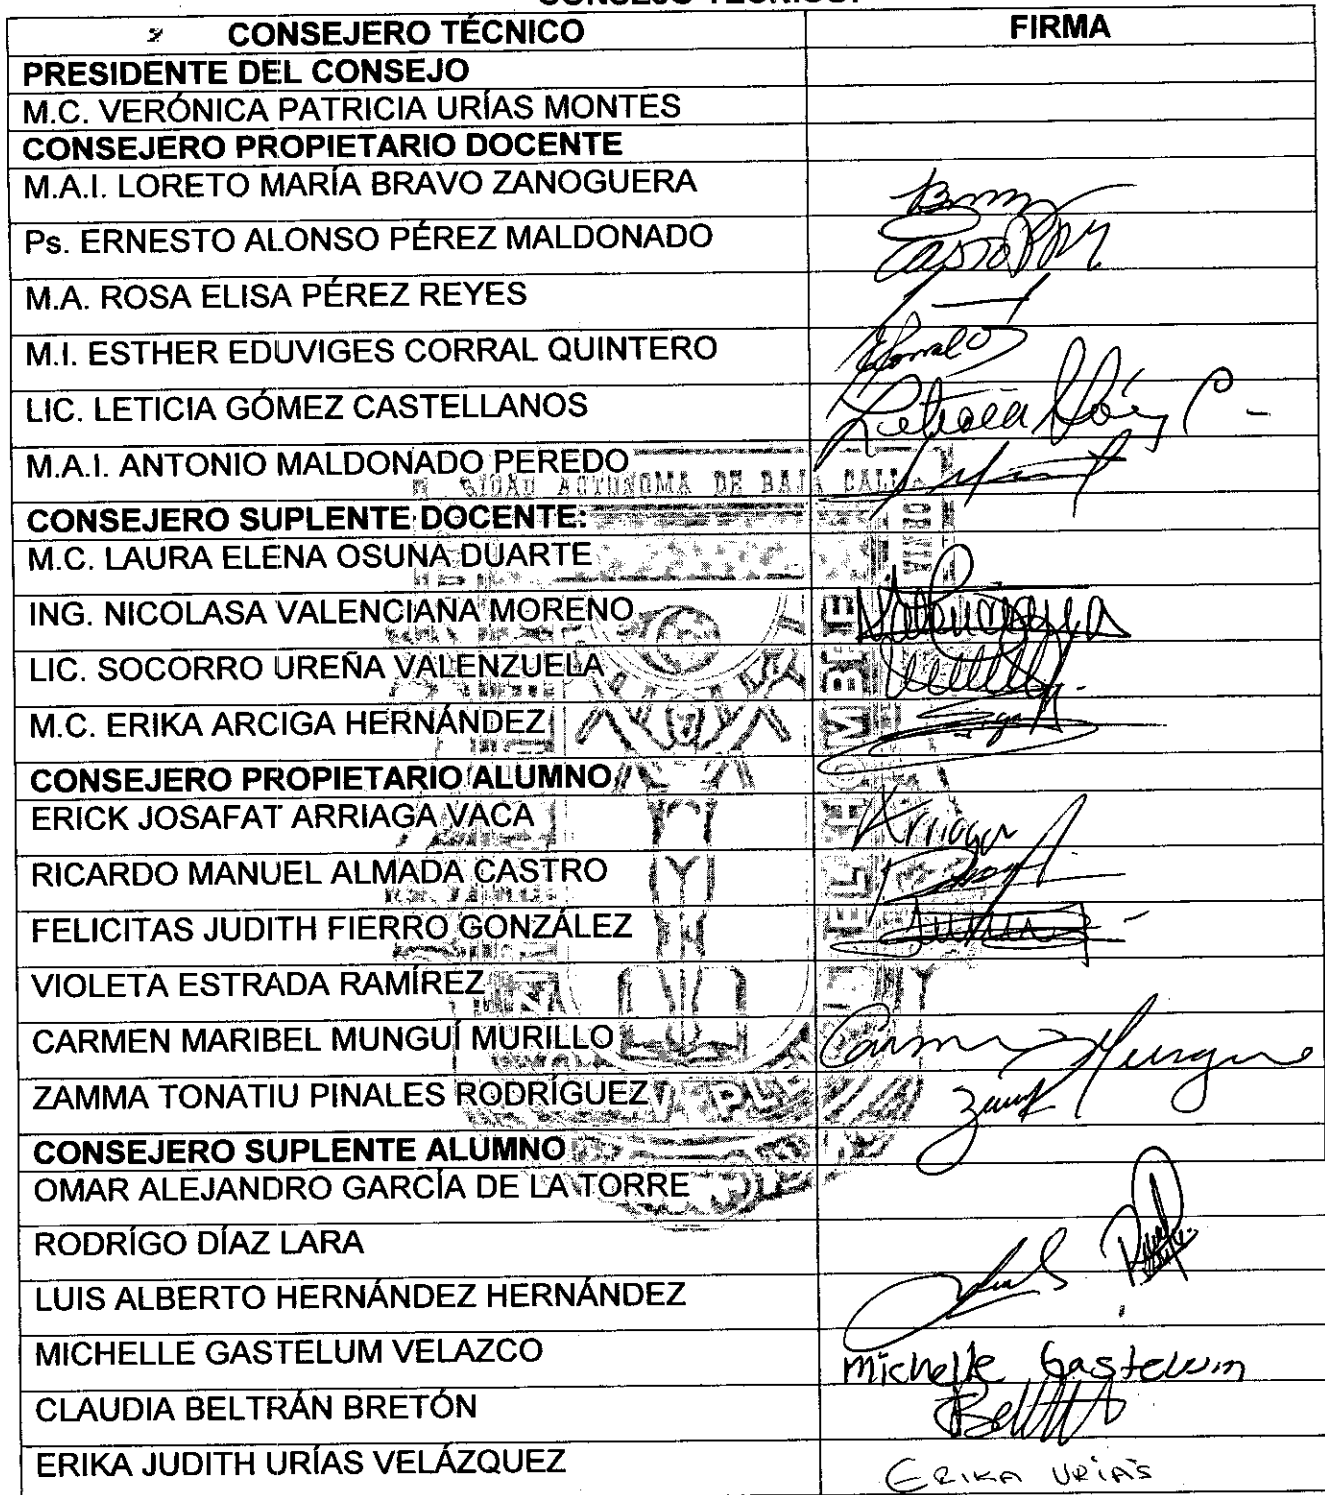 CONSEJERO TÉCNICO FIRMA
PRESIDENTE DEL CONSEJO
M.C. VERÓNICA PATRICIA URÍAS MONTES
CONSEJERO PROPIETARIO DOCENTE
M.A.I. LORETO MARÍA BRAVO ZANOGUERA
Ps. ERNESTO ALONSO PÉREZ MALDONADO
M.A. ROSA ELISA PÉREZ REYES
M.I. ESTHER EDUVIGES CORRAL QUINTERO
LIC. LETICIA GÓMEZ CASTELLANOS
M.A.I. ANTONIO MALDONADO PEREDO
AUTONOMA DE BAJA
CONSEJERO SUPLENTE DOCENTE:
M.C. LAURA ELENA OSUNA DUARTE
ING. NICOLASA VALENCIANA MORENO
LIC. SOCORRO UREÑA VALENZUELA
M.C. ERIKA ARCIGA HERNÁNDEZ
CONSEJERO PROPIETARIO ALUMNO
ERICK JOSAFAT ARRIAGA VACA
RICARDO MANUEL ALMADA CASTRO
FELICITAS JUDITH FIERRO GONZÁLEZ
VIOLETA ESTRADA RAMÍREZ
CARMEN MARIBEL MUNGUÍ MURILLO
ZAMMA TONATIU PINALES RODRÍGUEZ
CONSEJERO SUPLENTE ALUMNO
OMAR ALEJANDRO GARCÍA DE LA TORRE
RODRÍGO DÍAZ LARA
LUIS ALBERTO HERNÁNDEZ HERNÁNDEZ
MICHELLE GASTELUM VELAZCO Michelle Gastelum
CLAUDIA BELTRÁN BRETÓN
ERIKA JUDITH URÍAS VELÁZQUEZ ERIKA URÍAS